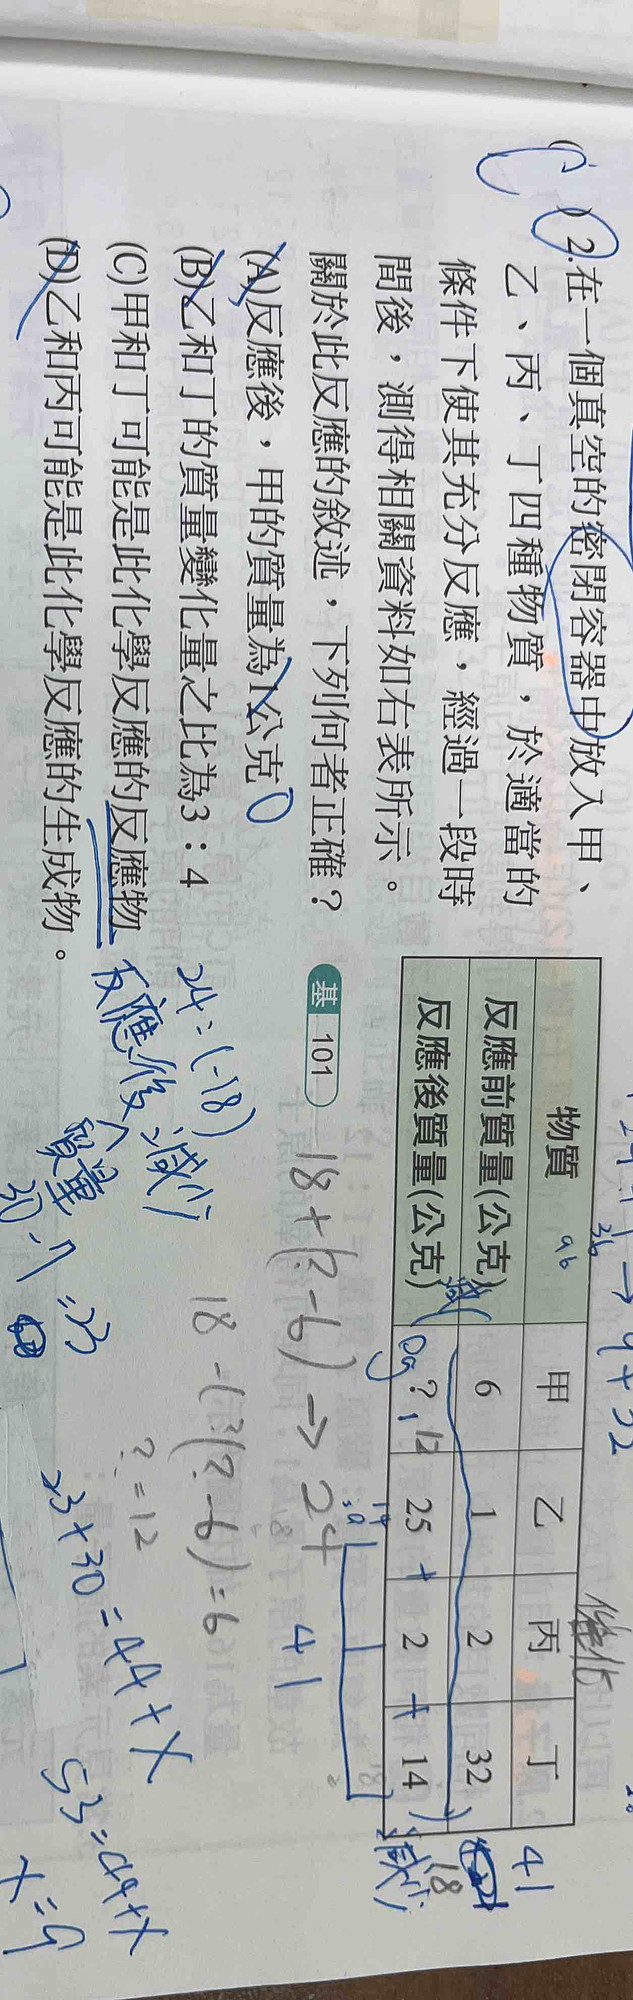 C
( )2.在一個真空的密閉容器中放入甲、
乙、丙、丁四種物質，於適當的
條件下使其充分反應，經過一段時
間後，測得相關資料如右表所示。
關於此反應的敘述，下列何者正確？
基 101
(A)反應後，甲的質量為1公克
(B)乙和丁的質量變化量之比為3：4
(C)甲和丁可能是此化學反應的反應物
(D)乙和丙可能是此化學反應的生成物。
催化
物質 甲 乙 丙 丁
反應前質量(公克) 6 1 2 32
反應後質量(公克) ? 25 2 14
41
18
減少
0g
12
18+(?-6)→24
41
24:(-18)
18-(?-6)=6
?=12
反應後減少
質量
23+30=44+X
53=44+X
X=9